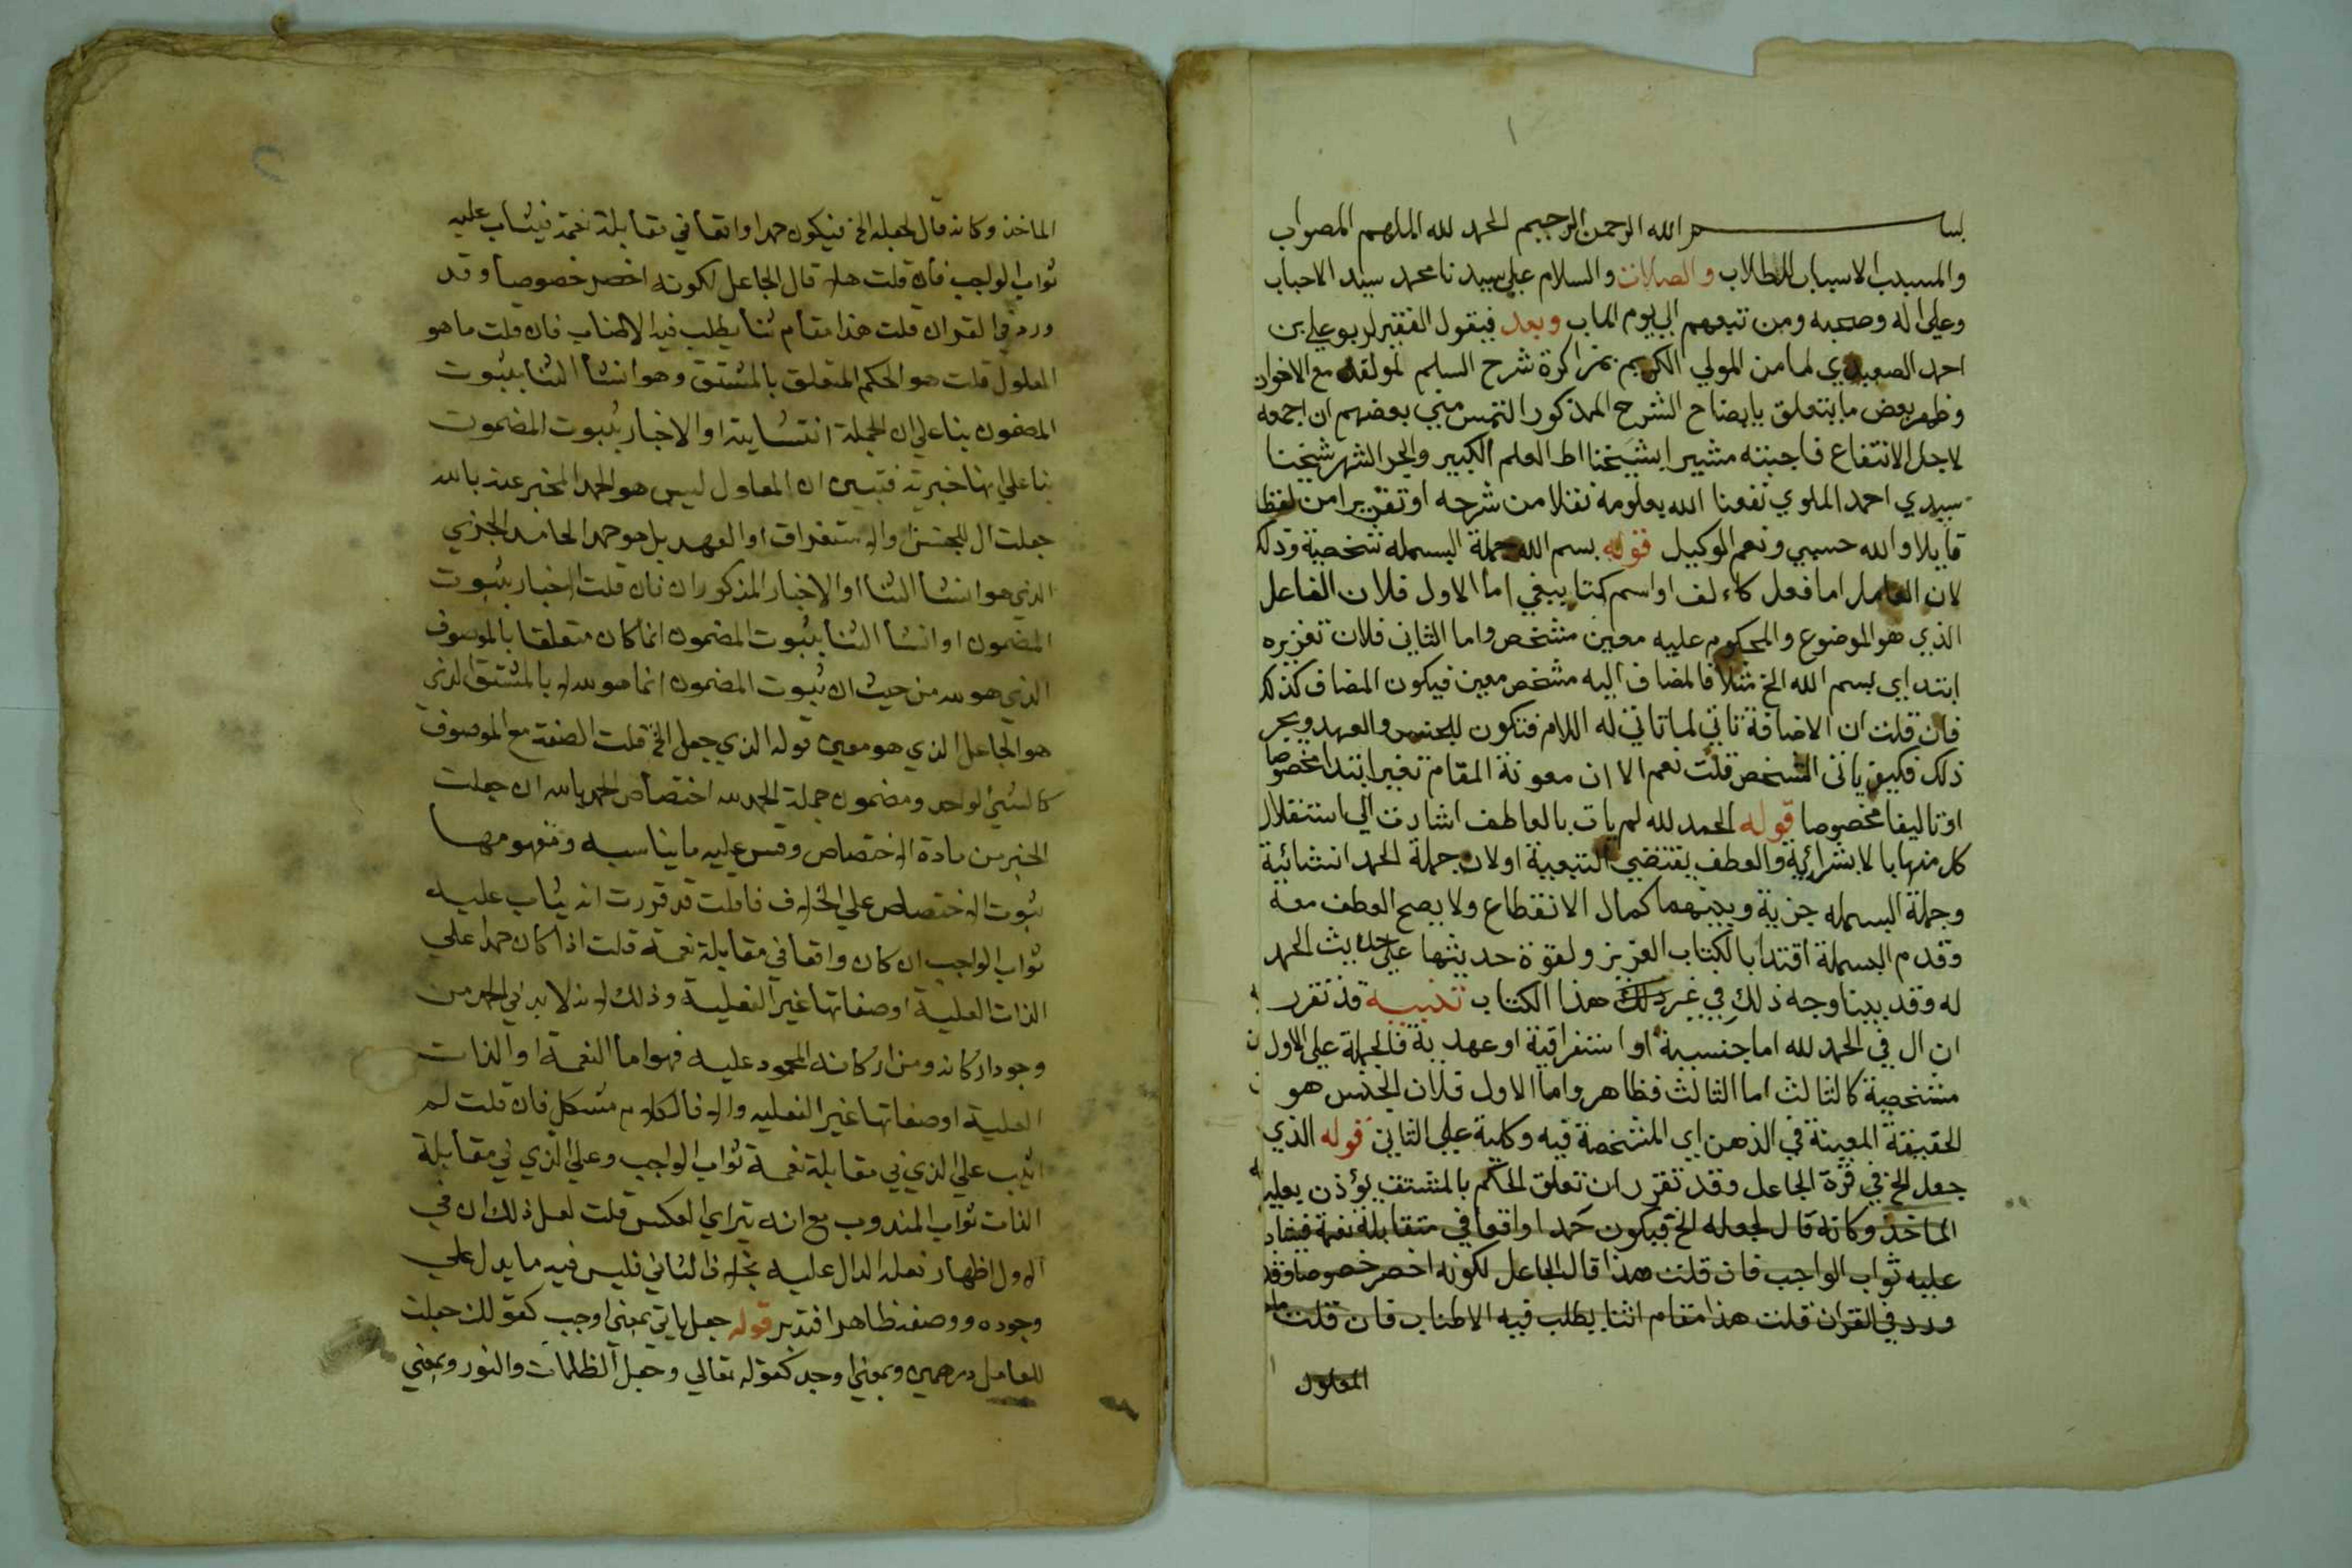 ١
بسم الله الرحمن الرحيم الحمد لله الملهم الصواب
والمسبب الاسباب للطلاب والصلاة والسلام على سيدنا محمد سيد الاحباب
وعلى اله وصحبه ومن تبعهم الي يوم الماب وبعد فيقول الفقير لربه علي بن
احمد الصعيدي لما من المولي الكريم بمذاكرة شرح السلم لمولفه مع الاخوان
وظهر بعض ما يتعلق بايضاح الشرح المذكور التمس مني بعضهم ان اجمعه
لاجل الانتفاع فاجبته مشيرا بشيخنا الى العلم الكبير والبحر الشهير شيخنا
سيدي احمد الملوي نفعنا الله بعلومه نقلا من شرحه او تقريرا من لفظه
قايلا والله حسبي ونعم الوكيل قوله بسم الله جملة البسمله شخصية وذلك
لان العامل اما فعل كاءلف او اسم كتاليفي اما الاول فلان الفاعل
الذي هو الموضوع والمحكوم عليه معين مشخص واما الثاني فلان تقديره
ابتداي بسم الله الخ مثلا فالمضاف اليه مشخص معين فيكون المضاف كذلك
فان قلت ان الاضافة تاتي لما تاتي له اللام فتكون للجنس والعهد وبحر
ذلك فكيف ياتي التشخص قلت نعم الا ان معونة المقام تفيد ابتدا مخصوصا
او تاليفا مخصوصا قوله الحمد لله لم يات بالعاطف اشارة الي استقلال
كل منهما بالابتدائية والعطف يقتضي التبعية او لان جملة الحمد انشائية
وجملة البسمله خبرية وبينهما كمال الانقطاع ولا يصح العطف معه
وقدم البسملة اقتدا بالكتاب العزيز ولقوة حديثها على حديث الحمد
له وقد بينا وجه ذلك في غير ذلك هذا الكتاب تنبيه قد تقرر
ان ال في الحمد لله اما جنسية او استغراقية او عهدية فالجملة على الاول
مشخصية كالثالث اما الثالث فظاهر واما الاول فلان الجنس هو
الحقيقة المعينة في الذهن اي المتشخصة فيه وكلية علي الثاني قوله الذي
جعل الخ في قوة الجاعل وقد تقرر ان تعلق الحكم بالمشتق يؤذن بعلية
الماخذ وكانه قال لجعله الخ فيكون حمدا واقعا في مقابلة نعمة فيثاب
عليه ثواب الواجب فان قلت هذا قال الجاعل لكونه اخصر خصوصا وقد
ورد في القران قلت هذا مقام اثنا يطلب فيه الاطناب فان قلت ما هو
المعلول
٢
الماخذ وكانه قال لجعله الخ فيكون حمدا واقعا في مقابلة نعمة فيثاب عليه
ثواب الواجب فان قلت هلا قال الجاعل لكونه اخصر خصوصا وقد
ورد في القران قلت هذا مقام ثنا يطلب فيه الاطناب فان قلت ما هو
المعلول قلت هو الحكم المتعلق بالمشتق وهو انشا الثنا بثبوت
المضمون بنا علي ان الجملة انشاية او الاخبار بثبوت المضمون
بنا علي انها خبرية فتبين ان المعلول ليس هو الحمد المخبر عنه بالله
جعلت ال للجنس او الاستغراق او العهد بل هو حمد الحامد الجزي
الذي هو انشا الثنا او الاخبار المذكوران فان قلت الاخبار بثبوت
المضمون او انشا الثنا بثبوت المضمون انما كان متعلقا بالموصوف
الذي هو لله من حيث ان ثبوت المضمون انما هو لله لا بالمشتق الذي
هو الجاعل الذي هو معنى قوله الذي جعل الخ قلت الصفة مع الموصوف
كالشي الواحد ومضمون جملة الحمد لله اختصاص الحمد بالله ان جعلت
الخبر من مادة الاختصاص وقس عليه ما يناسبه ومفهومها
ثبوت الاختصاص علي الخلاف فان قلت قد قررت انه يثاب عليه
ثواب الواجب ان كان واقعا في مقابلة نعمة قلت اذا كان حمدا علي
الذات العلية او صفاتها غير الفعلية وذلك لانه لا بد في الحمد من
وجود اركانه ومن اركانه المحمود عليه فهو اما النعمة او الذات
العلية او صفاتها غير الفعليه والا فالكلام مشكل فان قلت لم
اثيب علي الذي في مقابلة نعمة ثواب الواجب وعلي الذي في مقابلة
الذات ثواب المندوب مع انه يتراي العكس قلت لعل ذلك ان في
الاول اظهار فعله الدال عليه بخلاف الثاني فليس فيه ما يدل علي
وجوده ووصفه ظاهرا فتدبر قوله جعل ياتي بمعني اوجب كقولك جعلت
للعامل درهمين وبمعني اوجد كقوله تعالي وجعل الظلمات والنور وبمعني